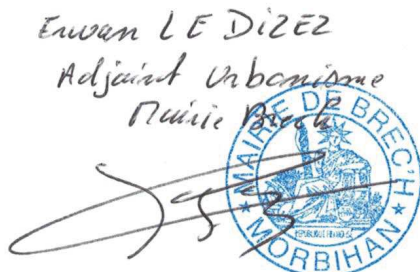 Erwan LE DiZEZ
Adjoint Urbanisme
Mairie Brech
MAIRIE DE BREC'H
★ MORBIHAN ★